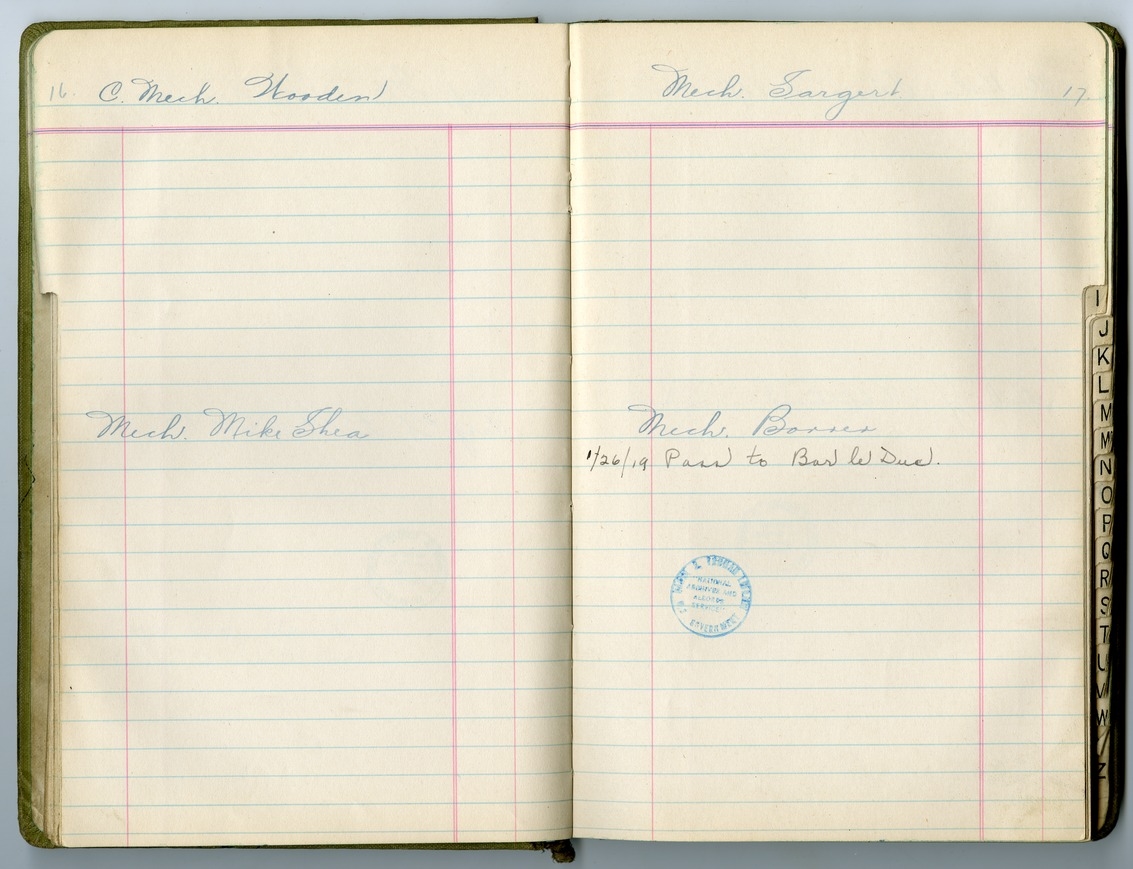 16. C. Mech. Wooden
Mech. Mike Shea
Mech. Sargent 17.
Mech. Borrer
1/26/19 Pass to Bar le Duc.
HARRY S. TRUMAN LIBRARY
NATIONAL
ARCHIVES AND
RECORDS
SERVICE
U.S. GOVERNMENT
I
J
K
L
M
Mc
N
O
P
Q
R
S
T
U
V
W
Z